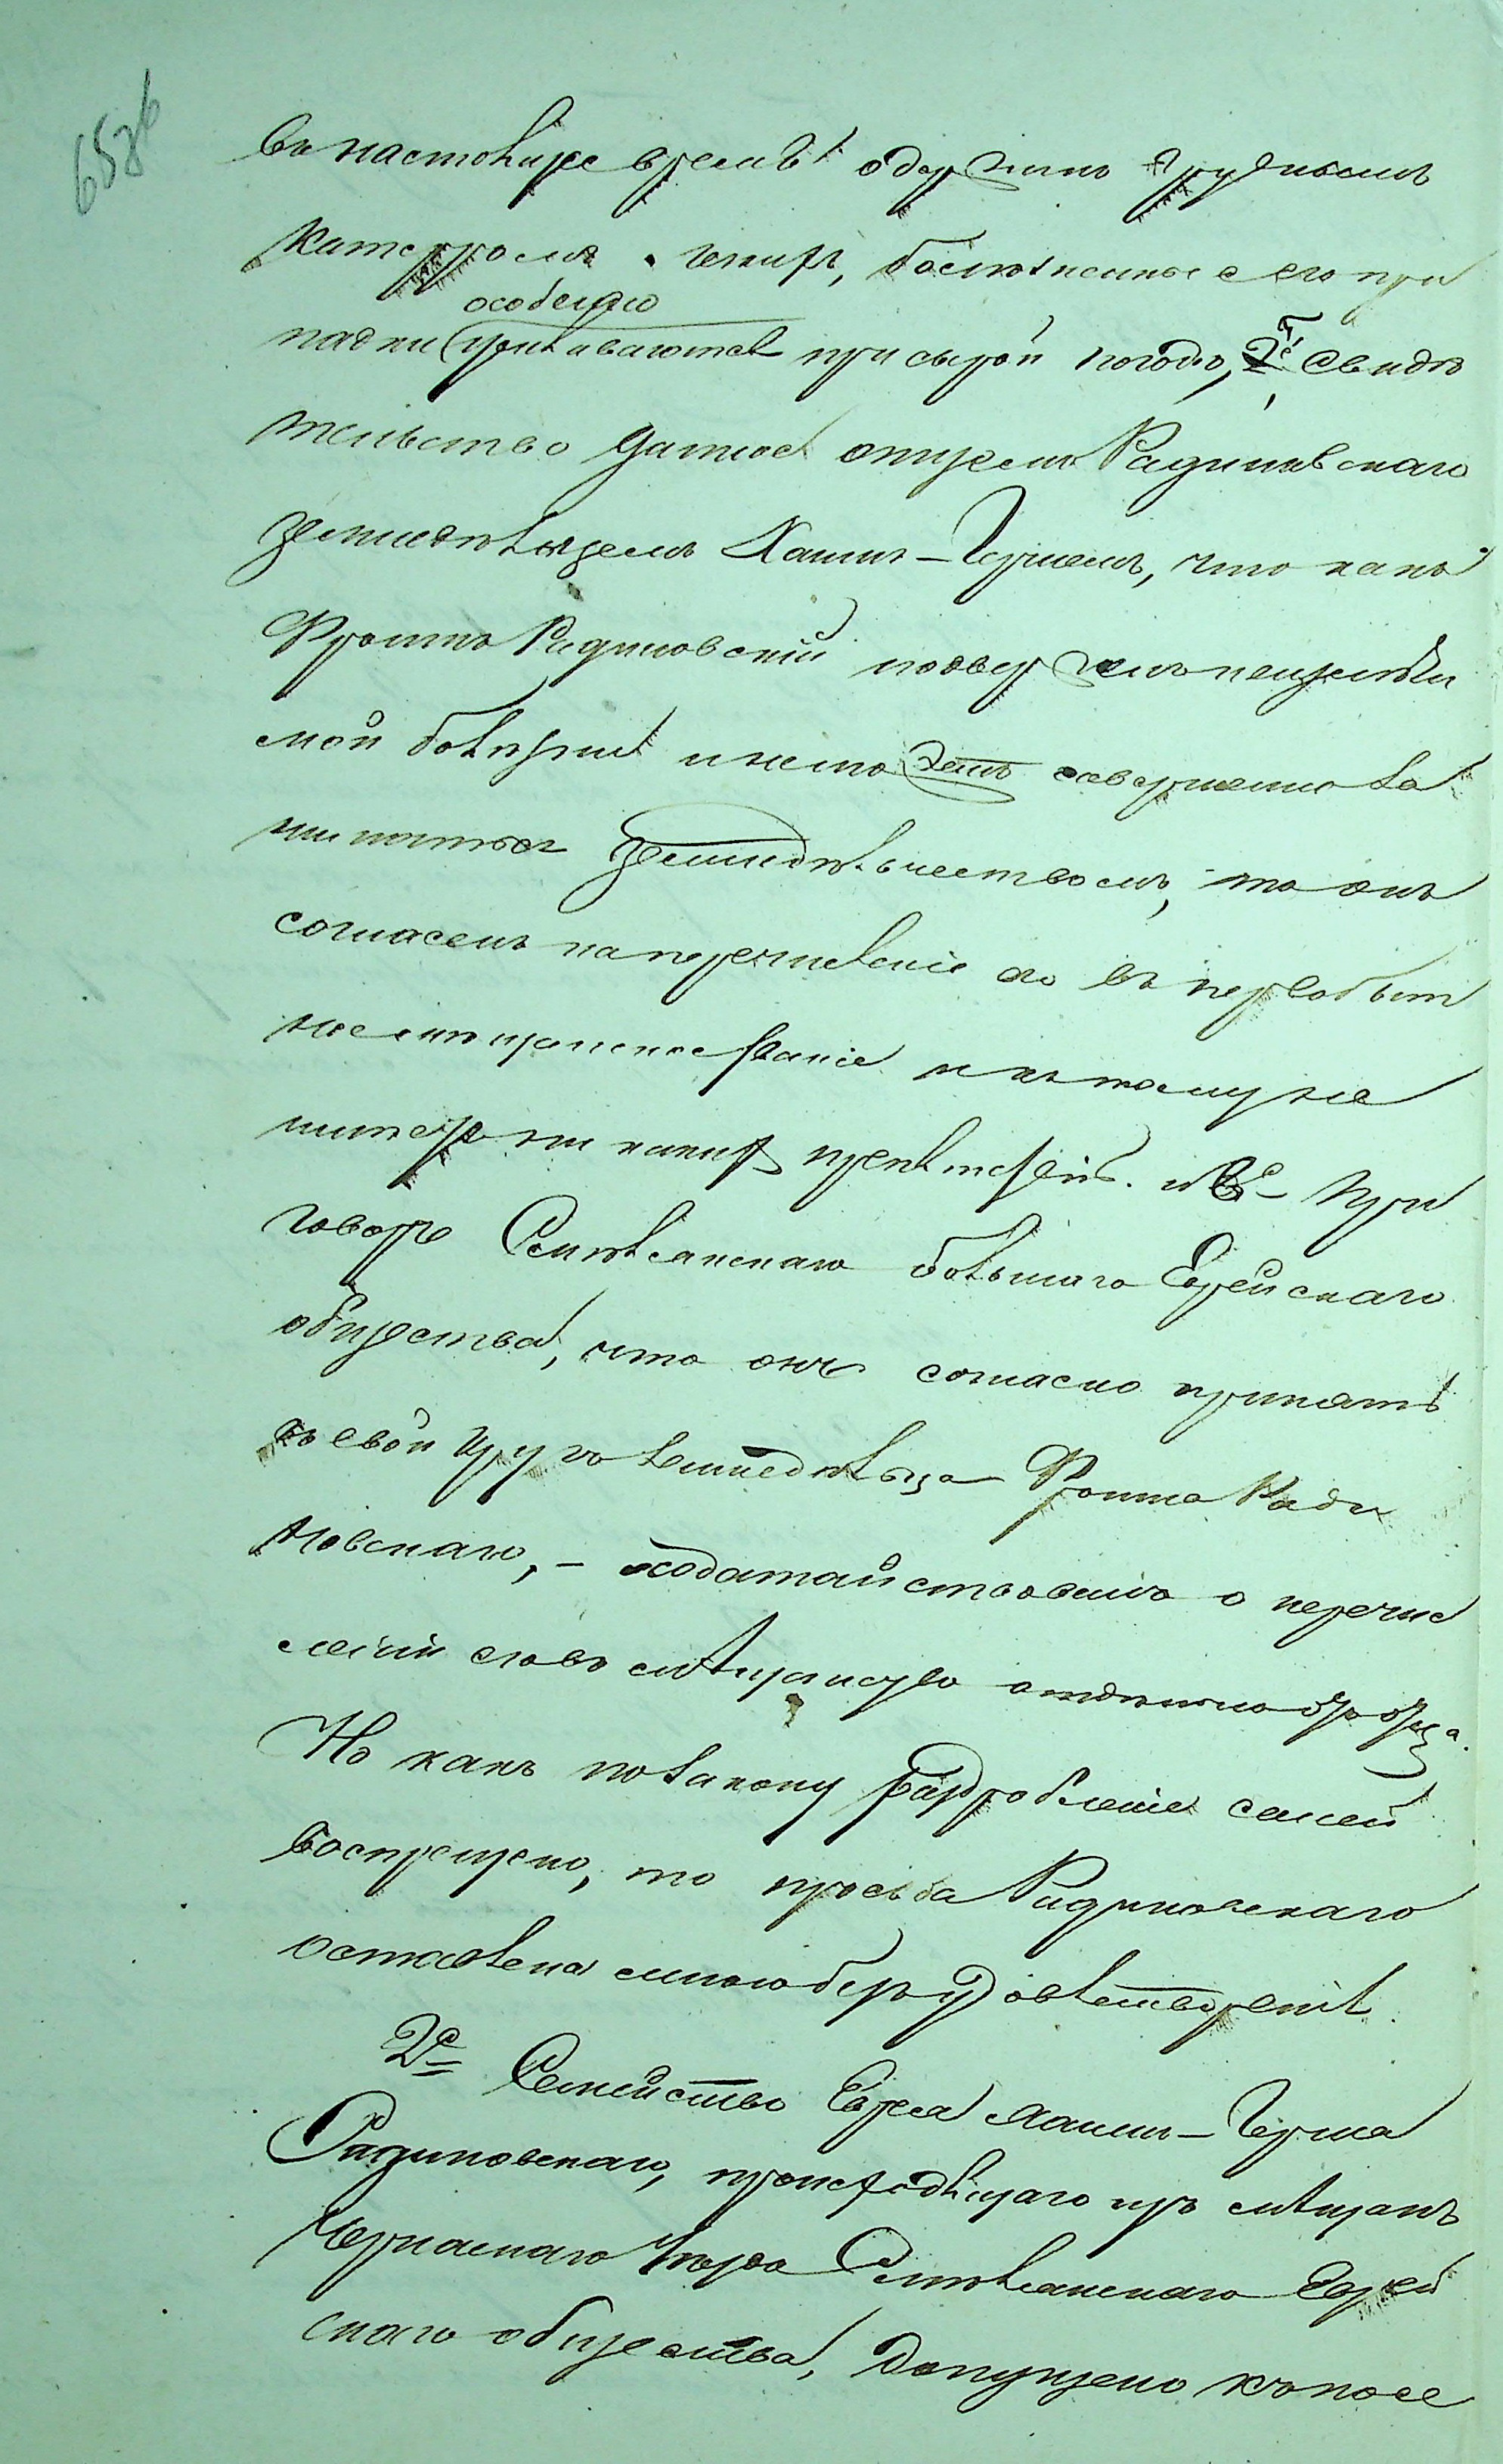 658б
въ настоящее время одержимъ груднымъ
катарромъ болѣзненные его при
особенно
падки усиливаются при сырой погодѣ, 2е, Свидѣ
тельство данное отцемъ Радиновскаго
земледѣльцемъ Хаимъ-Гершемъ, что какъ
Фроимъ Радиновскій подверженъ неизлѣчи
мой болѣзни и не можетъ совершенно за
ниматься земледѣльчествомъ, то онъ
согласенъ на перечисленіе его въ первобыт
ное мѣщанское званіе и къ тому не
имѣетъ ни какихъ препятствій. и 3е При
говоръ Смѣлянскаго большаго Еврейскаго
общества, что оно согласно принять
въ свой кругъ земледѣльца Фроима Ради
новскаго, - ходатайствовалъ о перечис
леніи его въ мѣщанство отдѣльно отъ отца.
Но какъ по закону раздробленіе семей
воспрещено, то просьба Радиновскаго
оставлена мною безъ удовлетворенія.
2е Семейство Еврея Хаимъ-Герша
Радиновскаго, происходящаго изъ мѣщанъ
Черкаскаго Уѣзда Смѣлянскаго Еврей
скаго общества, допущено къ посе